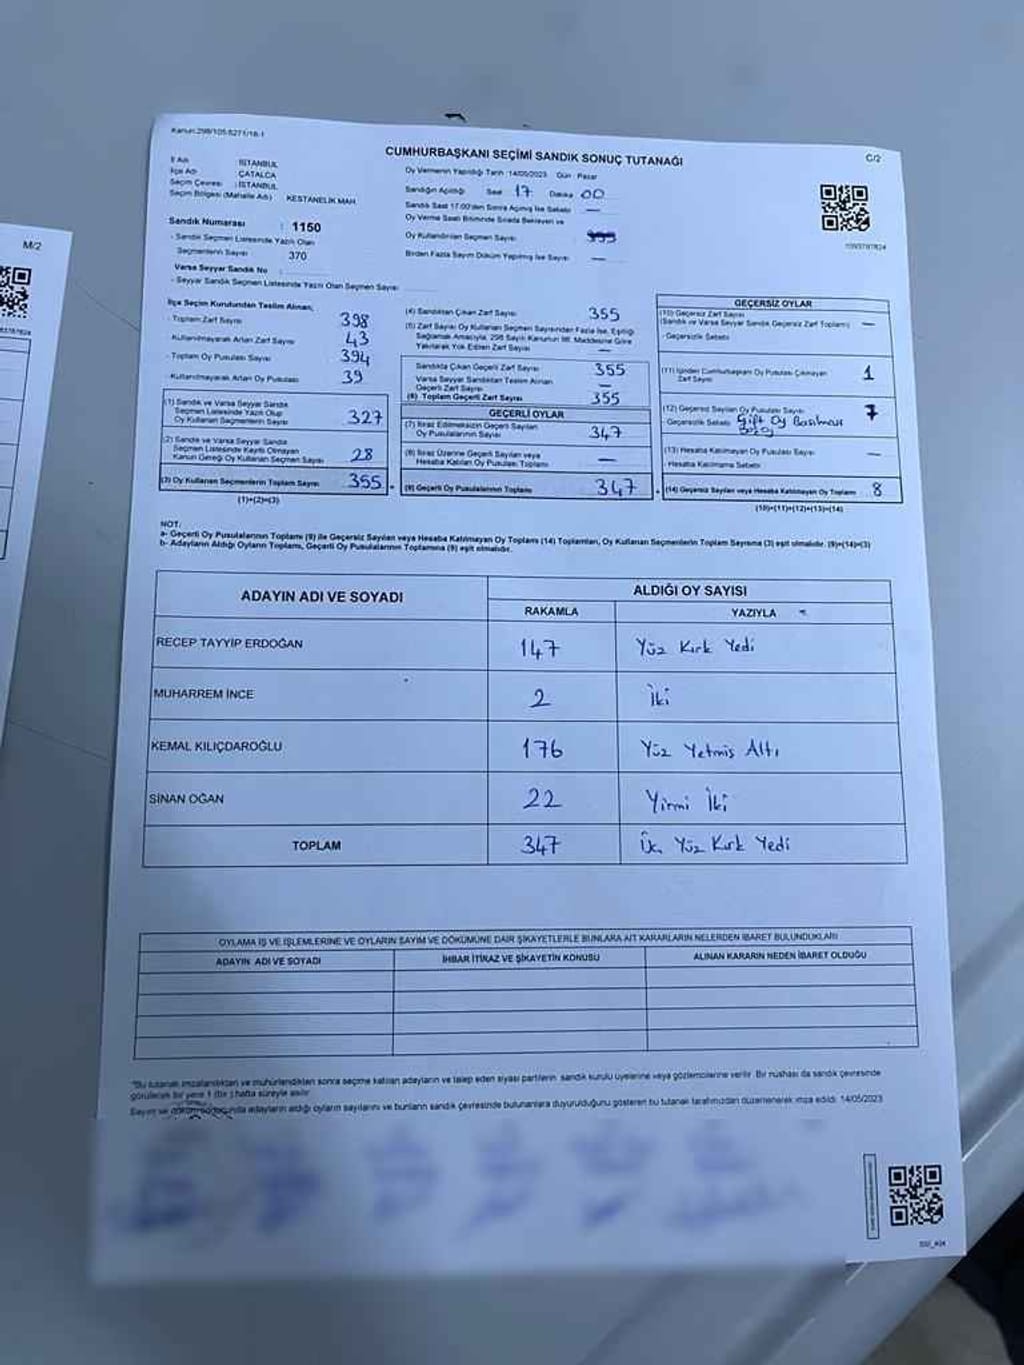 M/2
Kanun:298/105-6271/16-1
CUMHURBAŞKANI SEÇİMİ SANDIK SONUÇ TUTANAĞI
C/2
İl Adı : İSTANBUL
İlçe Adı : ÇATALCA
Seçim Çevresi : İSTANBUL
Seçim Bölgesi (Mahalle Adı) KESTANELİK MAH.
Oy Vermenin Yapıldığı Tarih :14/05/2023 Gün : Pazar
Sandığın Açıldığı Saat 17 Dakika 00
Sandık Saat 17.00'den Sonra Açılmış İse Sebebi —
Oy Verme Saati Bitiminde Sırada Bekleyen ve
Oy Kullandırılan Seçmen Sayısı
Birden Fazla Sayım Döküm Yapılmış İse Sayısı —
Sandık Numarası : 1150
- Sandık Seçmen Listesinde Yazılı Olan
Seçmenlerin Sayısı : 370
Varsa Seyyar Sandık No :
- Seyyar Sandık Seçmen Listesinde Yazılı Olan Seçmen Sayısı
İlçe Seçim Kurulundan Teslim Alınan;
- Toplam Zarf Sayısı 398
- Kullanılmayarak Artan Zarf Sayısı 43
- Toplam Oy Pusulası Sayısı 394
- Kullanılmayarak Artan Oy Pusulası 39
(1) Sandık ve Varsa Seyyar Sandık
Seçmen Listesinde Yazılı Olup
Oy Kullanan Seçmenlerin Sayısı 327
(2) Sandık ve Varsa Seyyar Sandık
Seçmen Listesinde Kayıtlı Olmayan
Kanun Gereği Oy Kullanan Seçmen Sayısı 28
(3) Oy Kullanan Seçmenlerin Toplam Sayısı 355
(1)+(2)=(3)
(4) Sandıktan Çıkan Zarf Sayısı 355
(5) Zarf Sayısı Oy Kullanan Seçmen Sayısından Fazla İse, Eşitliği
Sağlamak Amacıyla, 298 Sayılı Kanunun 98. Maddesine Göre
Yakılarak Yok Edilen Zarf Sayısı —
Sandıkta Çıkan Geçerli Zarf Sayısı 355
Varsa Seyyar Sandıktan Teslim Alınan
Geçerli Zarf Sayısı —
(6) Toplam Geçerli Zarf Sayısı 355
GEÇERLİ OYLAR
(7) İtiraz Edilmeksizin Geçerli Sayılan
Oy Pusulalarının Sayısı 347
(8) İtiraz Üzerine Geçerli Sayılan veya
Hesaba Katılan Oy Pusulası Toplamı —
(9) Geçerli Oy Pusulalarının Toplamı 347
GEÇERSİZ OYLAR
(10) Geçersiz Zarf Sayısı
(Sandık ve Varsa Seyyar Sandık Geçersiz Zarf Toplamı) —
- Geçersizlik Sebebi
(11) İçinden Cumhurbaşkanı Oy Pusulası Çıkmayan
Zarf Sayısı 1
(12) Geçersiz Sayılan Oy Pusulası Sayısı 7
- Geçersizlik Sebebi Çift Oy Basılması
(13) Hesaba Katılmayan Oy Pusulası Sayısı —
- Hesaba Katılmama Sebebi
(14) Geçersiz Sayılan veya Hesaba Katılmayan Oy Toplamı 8
(10)+(11)+(12)+(13)=(14)
NOT:
a- Geçerli Oy Pusulalarının Toplamı (9) ile Geçersiz Sayılan veya Hesaba Katılmayan Oy Toplamı (14) Toplamları, Oy Kullanan Seçmenlerin Toplam Sayısına (3) eşit olmalıdır. (9)+(14)=(3)
b- Adayların Aldığı Oyların Toplamı, Geçerli Oy Pusulalarının Toplamına (9) eşit olmalıdır.
ADAYIN ADI VE SOYADI
ALDIĞI OY SAYISI
RAKAMLA YAZIYLA
RECEP TAYYİP ERDOĞAN 147 Yüz Kırk Yedi
MUHARREM İNCE 2 İki
KEMAL KILIÇDAROĞLU 176 Yüz Yetmiş Altı
SİNAN OĞAN 22 Yirmi İki
TOPLAM 347 Üç Yüz Kırk Yedi
OYLAMA İŞ VE İŞLEMLERİNE VE OYLARIN SAYIM VE DÖKÜMÜNE DAİR ŞİKAYETLERLE BUNLARA AİT KARARLARIN NELERDEN İBARET BULUNDUKLARI
ADAYIN ADI VE SOYADI İHBAR İTİRAZ VE ŞİKAYETİN KONUSU ALINAN KARARIN NEDEN İBARET OLDUĞU
"Bu tutanak imzalandıktan ve mühürlendikten sonra seçime katılan adayların ve talep eden siyasi partilerin sandık kurulu üyelerine veya gözlemcilerine verilir. Bir nüshası da sandık çevresinde
görülecek bir yere 1 (bir) hafta süreyle asılır.
Sayım ve dökümünde adayların aldığı oyların sayılarını ve bunların sandık çevresinde bulunanlara duyurulduğunu gösteren bu tutanak tarafımızdan düzenlenerek imza edildi. 14/05/2023